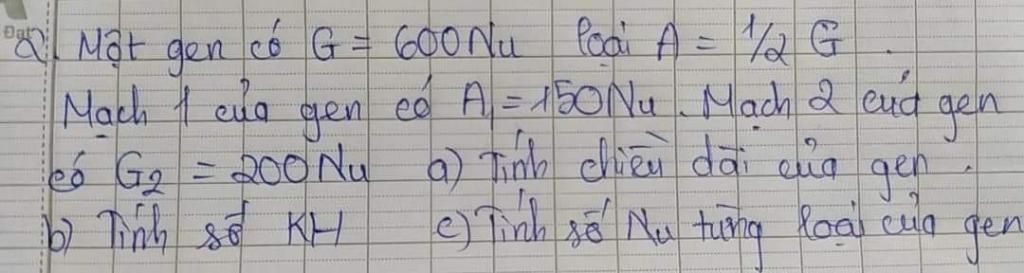 2) Một gen có G = 600Nu loại A = 1/2 G.
Mạch 1 của gen có A1 = 150Nu. Mạch 2 của gen
có G2 = 200Nu a) Tính chiều dài của gen.
b) Tính số KH c) Tính số Nu từng loại của gen